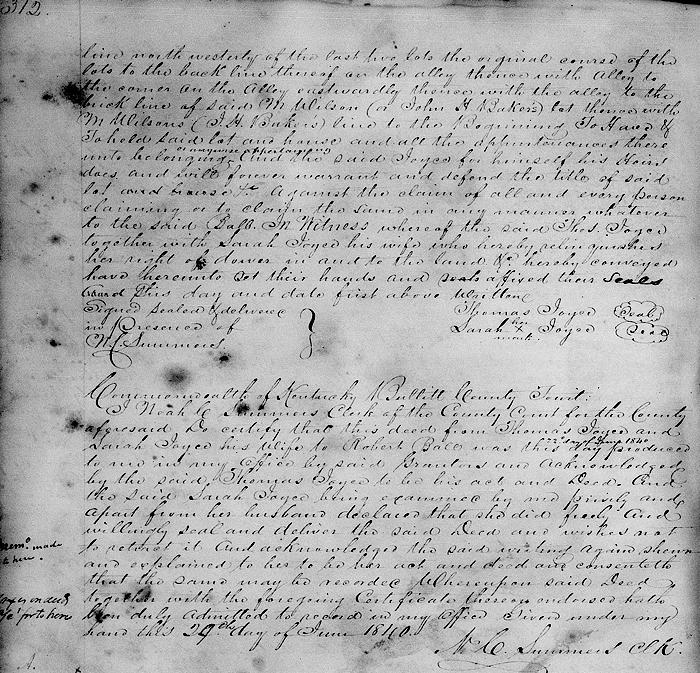 312.
line north westerly of the last two lots the original course of the
lots to the back line thereof on the alley thence with alley to
the corner on the alley eastwardly thence with the alley to the
back line of said M Wilson (or John H Bakers) lot thence with
M Wilsons (J. H. Bakers) line to the Beginning To Have &
To hold said lot and house and all the appurtenances there
or in anywise appertaining
unto belonging, And the said Joyce for himself his Heirs
does and will forever warrant and defend the title of said
lot and house &c Against the claim of all and every person
claiming or to claim the same in any manner whatever
to the said Ball. In Witness whereof the said Thos. Joyce
together with Sarah Joyce his wife who hereby relinquishes
her right of dower in and to the land &c hereby conveyed
have hereunto set their hands and seals affixed their Seals
this day and date first above written
Signed sealed & delivered
in Presence of
N C Summers
Thomas Joyce Seal
Sarah her X mark Joyce Seal
Commonwealth of Kentucky Bullitt County Court:
I Noah C Summers Clerk of the County Court for the County
aforesaid Do certify that this deed from Thomas Joyce and
22nd day of June 1840
Sarah Joyce his Wife to Robert Ball was this day produced
to me in my Office by said Grantors and Acknowledged
by the said Thomas Joyce to be his act and Deed. And
the said Sarah Joyce being examined by me privily and
apart from her husband declared that she did freely And
willingly seal and deliver the said Deed and wishes not
to retract it And acknowledged the said writing again shewn
and explained to her to be her act and deed and consenteth
that the same may be recorded Whereupon said Deed
together with the foregoing Certificate thereon endorsed hath
been duly Admitted to record in my Office Given under my
hand this 29th day of June 1840.
N C. Summers Clk.
memo. made